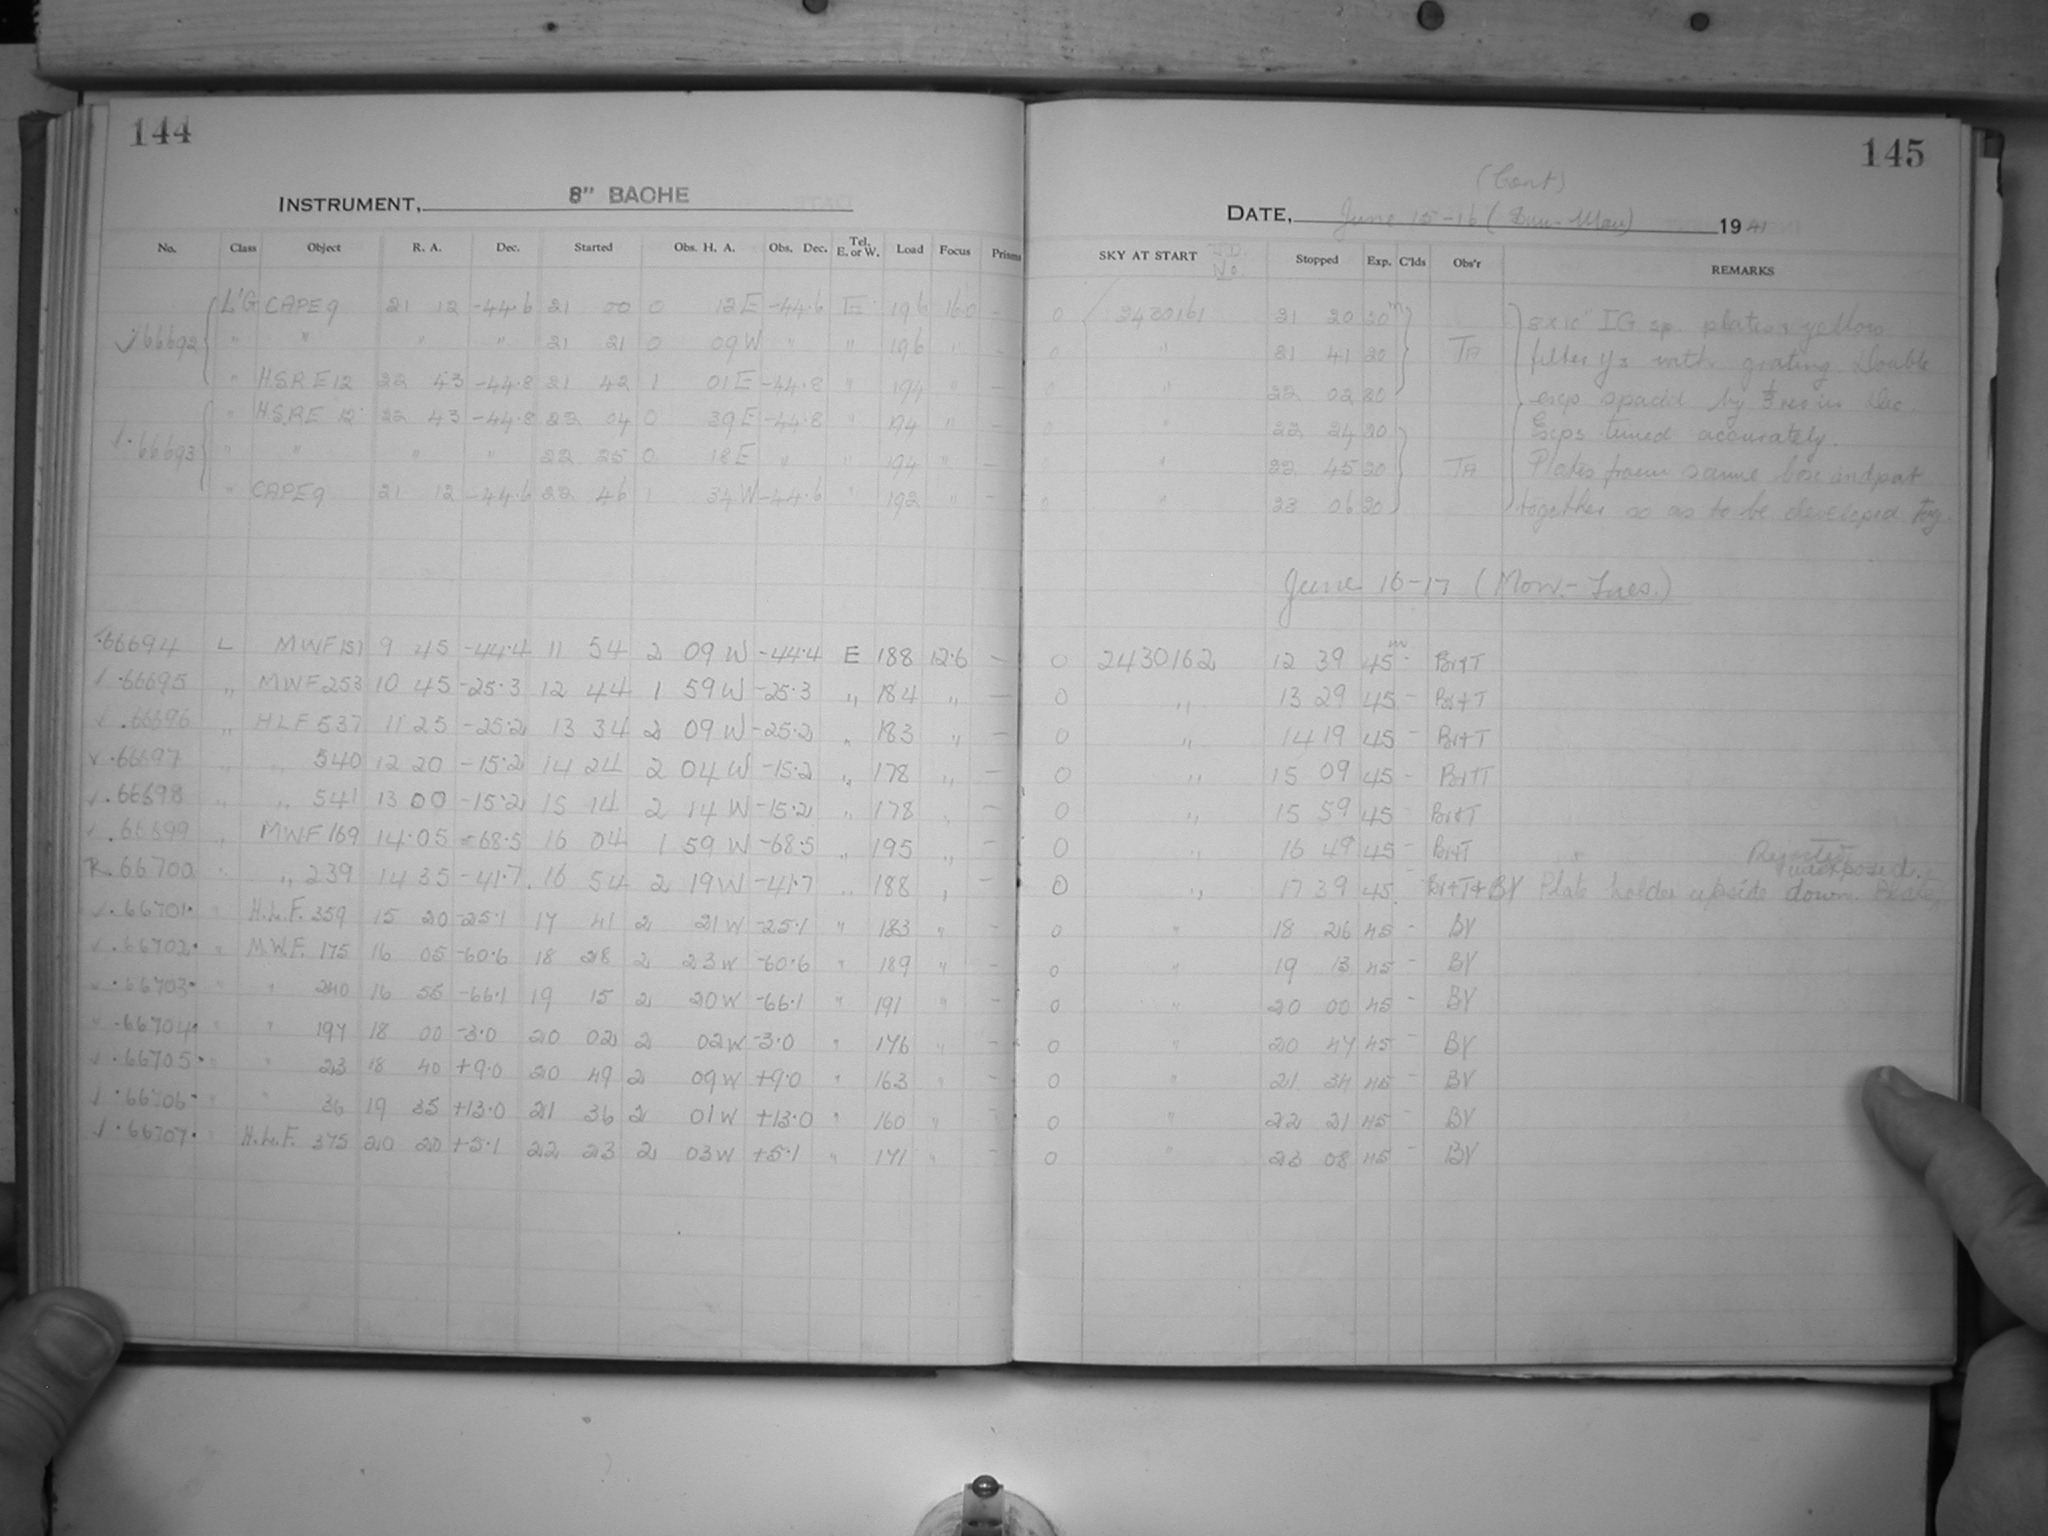 144
INSTRUMENT, 8" BACHE
No. Class Object R. A. Dec. Started Obs. H. A. Obs. Dec. Tel. E. or W. Load Focus Prisms
L'G CAPE 9 21 12 -44.6 21 00 0 12 E -44.6 E 196 16.0 -
√ 66692 " " " " 21 21 0 09 W " " 196 " -
" HSRE 12 22 43 -44.8 21 42 1 01 E -44.8 " 194 " -
" HSRE 12 22 43 -44.8 22 04 0 39 E -44.8 " 194 " -
√ 66693 " " " " 22 25 0 18 E " " 194 " -
" CAPE 9 21 12 -44.6 22 46 1 34 W -44.6 " 192 " -
66694 L MWF 151 9 45 -44.4 11 54 2 09 W -44.4 E 188 12.6 -
√ .66695 " MWF 253 10 45 -25.3 12 44 1 59 W -25.3 " 184 " -
√ .66696 " HLF 537 11 25 -25.2 13 34 2 09 W -25.2 " 183 " -
√ .66697 " " 540 12 20 -15.2 14 24 2 04 W -15.2 " 178 " -
√ .66698 " " 541 13 00 -15.2 15 14 2 14 W -15.2 " 178 " -
√ .66699 " MWF 169 14.05 -68.5 16 04 1 59 W -68.5 " 195 " -
R. 66700 " " 239 14 35 -41.7 16 54 2 19 W -41.7 " 188 " -
√ .66701 " H.L.F. 359 15 20 -25.1 17 41 2 21 W -25.1 " 183 " -
√ .66702 " M.W.F. 175 16 05 -60.6 18 28 2 23 W -60.6 " 189 " -
√ .66703 " " 240 16 55 -66.1 19 15 2 20 W -66.1 " 191 " -
√ .66704 " " 197 18 00 -3.0 20 02 2 02 W -3.0 " 176 " -
√ .66705 " " 23 18 40 +9.0 20 49 2 09 W +9.0 " 163 " -
√ .66706 " " 36 19 35 +13.0 21 36 2 01 W +13.0 " 160 " -
√ .66707 " H.L.F. 375 20 20 +5.1 22 23 2 03 W +5.1 " 171 " -
145
(Cont)
DATE, June 15-16 (Sun-Mon) 1941
SKY AT START J.D. No. Stopped Exp. C'lds Obs'r REMARKS
0 2430161 21 20 20m 8x10" IG sp. plates yellow
0 " 21 41 20 TA filter Y3 with grating. Double
0 " 22 02 20 exp spaced by in Dec.
0 " 22 24 20 Exps timed accurately.
0 " 22 45 20 TA Plates from same box and put
0 " 23 06 20 together so as to be developed tog.
June 16-17 (Mon.-Tues.)
0 2430162 12 39 45m - Br+T
0 " 13 29 45 - Br+T
0 " 14 19 45 - Br+T
0 " 15 09 45 - Br+T
0 " 15 59 45 - Br+T
0 " 16 49 45 - Br+T
Rejected underexposed.
0 " 17 39 45 - Br+T+BY Plate holder upside down. Plate
0 " 18 26 45 - BY
0 " 19 13 45 - BY
0 " 20 00 45 - BY
0 " 20 47 45 - BY
0 " 21 34 45 - BY
0 " 22 21 45 - BY
0 " 23 08 45 - BY